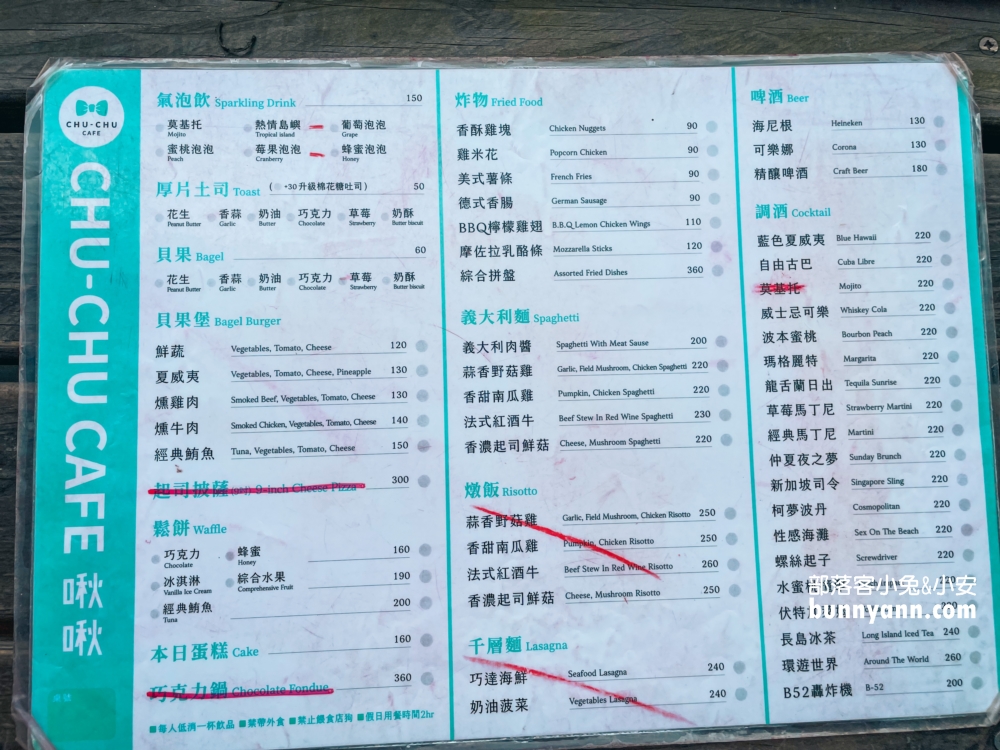 CHU-CHU
CAFE
CHU-CHU CAFE 啾啾
氣泡飲 Sparkling Drink 150
莫基托 熱情島嶼 葡萄泡泡
Mojito Tropical island Grape
蜜桃泡泡 莓果泡泡 蜂蜜泡泡
Peach Cranberry Honey
厚片土司 Toast (+30升級棉花糖吐司) 50
花生 香蒜 奶油 巧克力 草莓 奶酥
Peanut Butter Garlic Butter Chocolate Strawberry Butter biscuit
貝果 Bagel 60
花生 香蒜 奶油 巧克力 草莓 奶酥
Peanut Butter Garlic Butter Chocolate Strawberry Butter biscuit
貝果堡 Bagel Burger
鮮蔬 Vegetables, Tomato, Cheese 120
夏威夷 Vegetables, Tomato, Cheese, Pineapple 130
燻雞肉 Smoked Beef, Vegetables, Tomato, Cheese 130
燻牛肉 Smoked Chicken, Vegetables, Tomato, Cheese 140
經典鮪魚 Tuna, Vegetables, Tomato, Cheese 150
起司披薩 9-inch Cheese Pizza 300
鬆餅 Waffle
巧克力 蜂蜜 160
Chocolate Honey
冰淇淋 綜合水果 190
Vanilla Ice Cream Comprehensive Fruit
經典鮪魚 200
Tuna
本日蛋糕 Cake 160
巧克力鍋 Chocolate Fondue 360
■每人低消一杯飲品 ■禁帶外食 ■禁止餵食店狗 ■假日用餐時間2hr
炸物 Fried Food
香酥雞塊 Chicken Nuggets 90
雞米花 Popcorn Chicken 90
美式薯條 French Fries 90
德式香腸 German Sausage 90
BBQ檸檬雞翅 B.B.Q Lemon Chicken Wings 110
摩佐拉乳酪條 Mozzarella Sticks 120
綜合拼盤 Assorted Fried Dishes 360
義大利麵 Spaghetti
義大利肉醬 Spaghetti With Meat Sause 200
蒜香野菇雞 Garlic, Field Mushroom, Chicken Spaghetti 220
香甜南瓜雞 Pumpkin, Chicken Spaghetti 220
法式紅酒牛 Beef Stew In Red Wine Spaghetti 230
香濃起司鮮菇 Cheese, Mushroom Spaghetti 220
燉飯 Risotto
蒜香野菇雞 Garlic, Field Mushroom, Chicken Risotto 250
香甜南瓜雞 Pumpkin, Chicken Risotto 250
法式紅酒牛 Beef Stew In Red Wine Risotto 260
香濃起司鮮菇 Cheese, Mushroom Risotto 250
千層麵 Lasagna
巧達海鮮 Seafood Lasagna 240
奶油菠菜 Vegetables Lasagna 240
啤酒 Beer
海尼根 Heineken 130
可樂娜 Corona 130
精釀啤酒 Craft Beer 180
調酒 Cocktail
藍色夏威夷 Blue Hawaii 220
自由古巴 Cuba Libre 220
莫基托 Mojito 220
威士忌可樂 Whiskey Cola 220
波本蜜桃 Bourbon Peach 220
瑪格麗特 Margarita 220
龍舌蘭日出 Tequila Sunrise 220
草莓馬丁尼 Strawberry Martini 220
經典馬丁尼 Martini 220
仲夏夜之夢 Sunday Brunch 220
新加坡司令 Singapore Sling 220
柯夢波丹 Cosmopolitan 220
性感海灘 Sex On The Beach 220
螺絲起子 Screwdriver 220
水蜜
伏特
長島冰茶 Long Island Iced Tea 240
環遊世界 Around The World 260
B52轟炸機 B-52 200
部落客小兔&小安
bunnyann.com